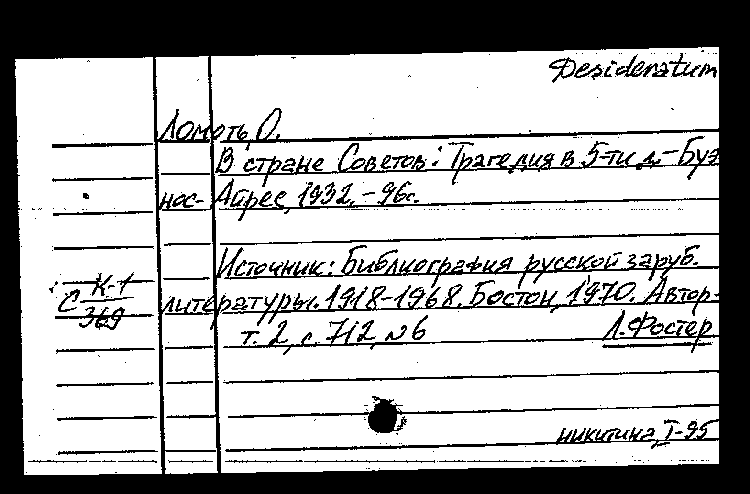 Desideratum
Ломоть, О.
В стране Советов: Трагедия в 5-ти д. - Буэ
нос-Айрес, 1932. - 96с.
Источник: Библиография русской заруб.
С К-1/369 литературы. 1918-1968. Бостон, 1970. Автор-
т. 2, с. 712, №6 Л. Фостер
никитина, I-95